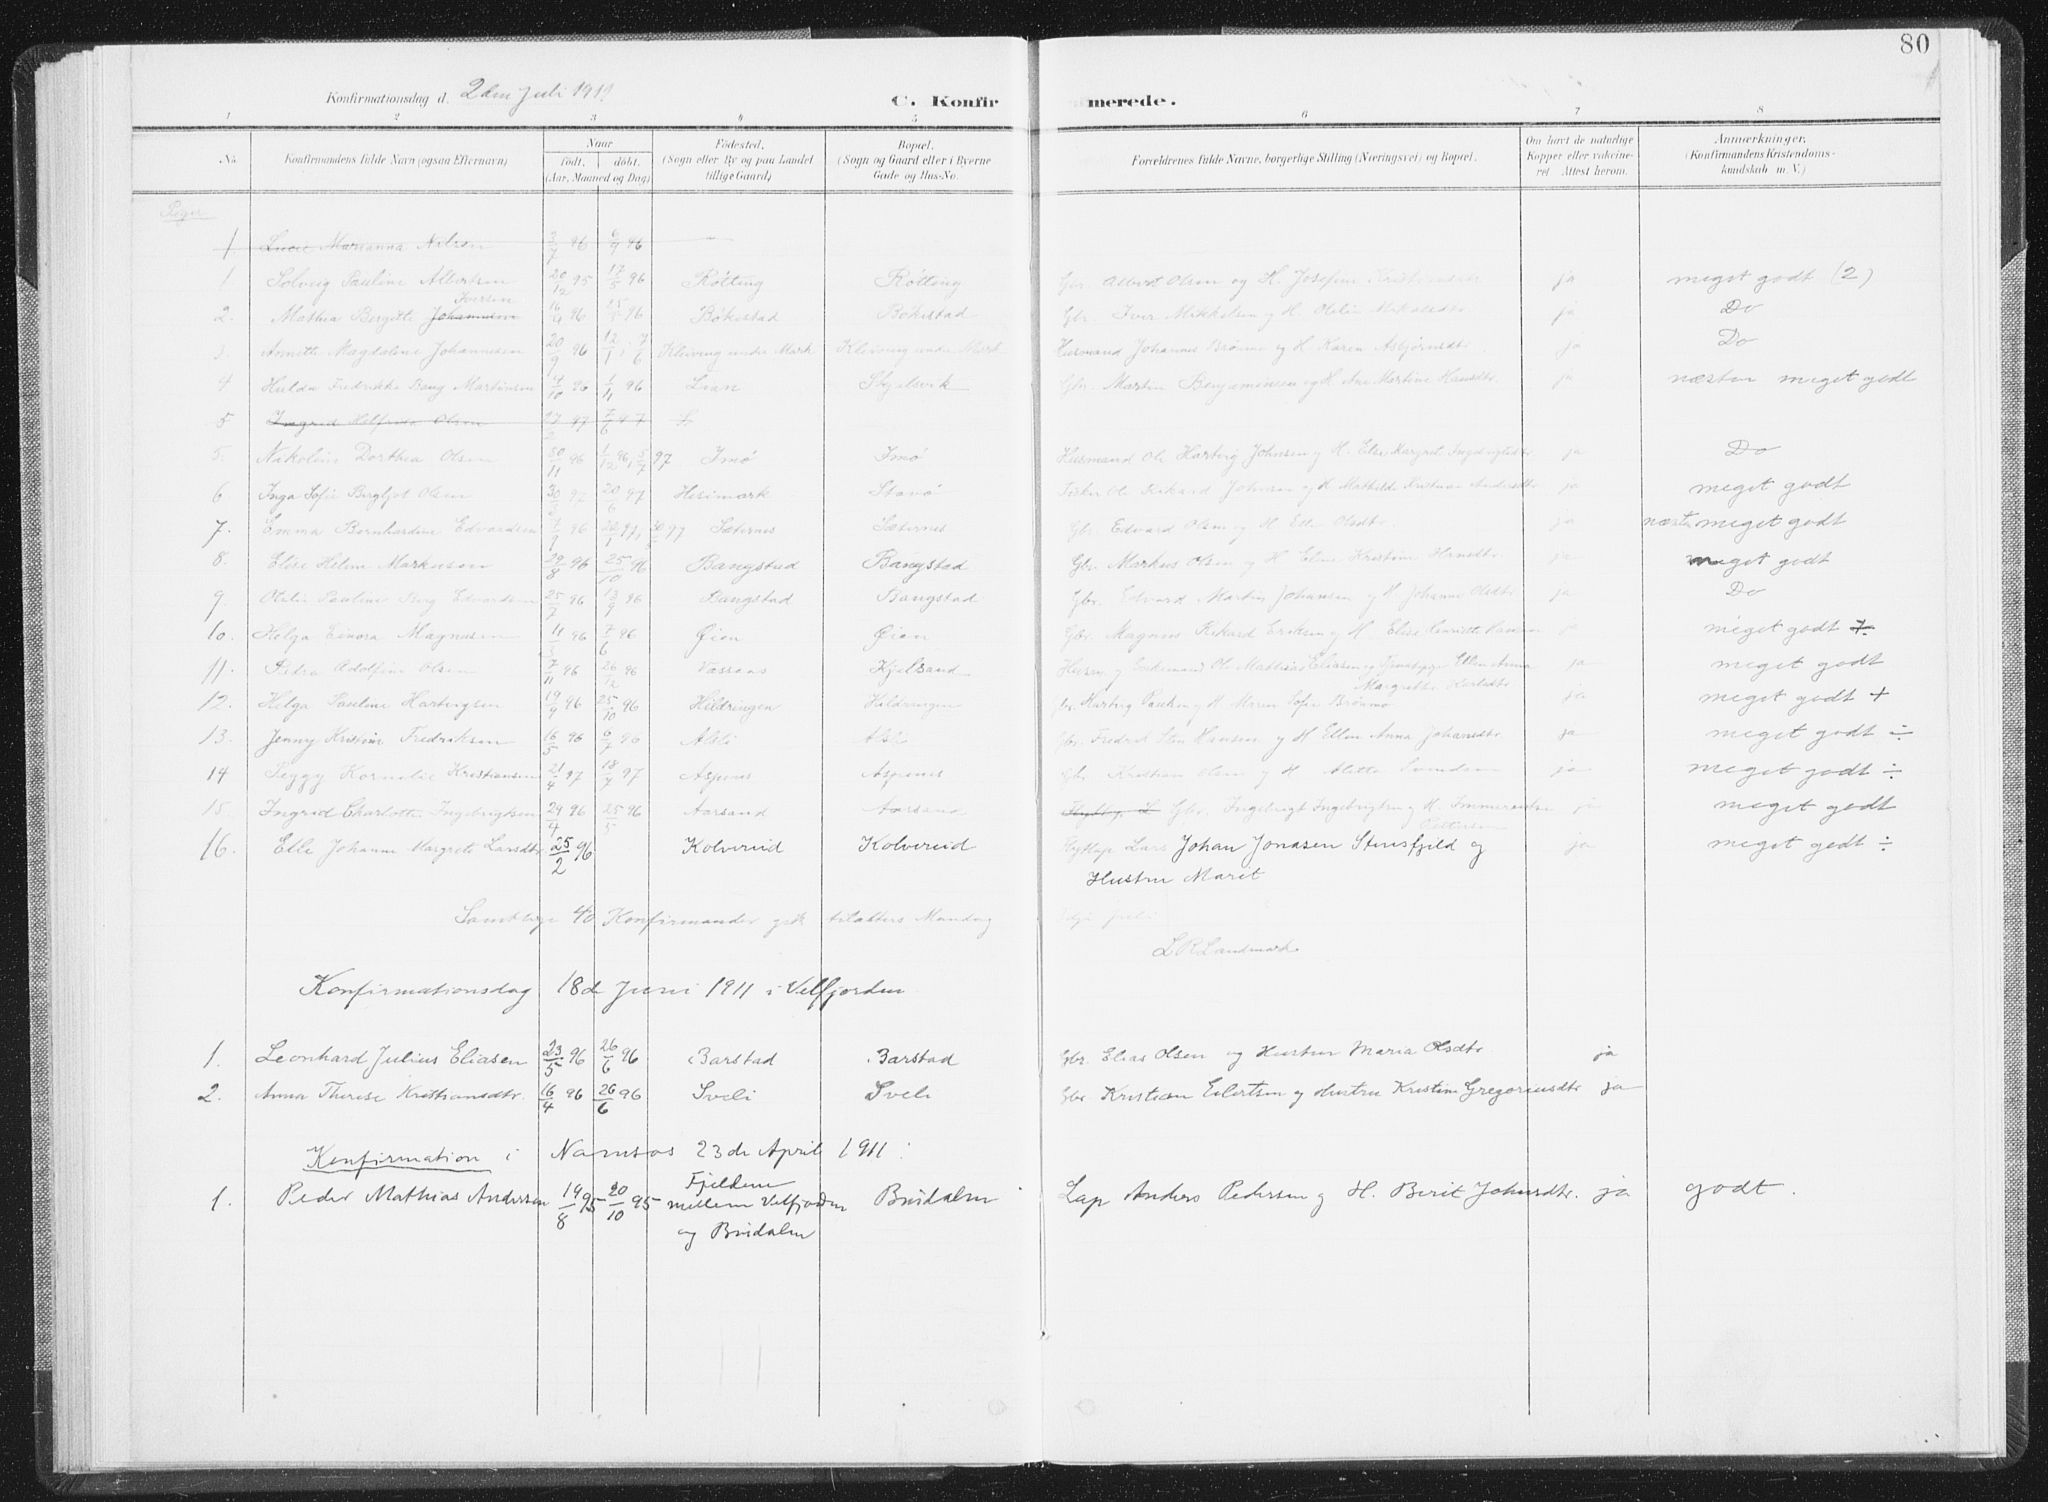 80
Konfirmationsdag d. 2den Juli 1911
C. Konfir merede.
1 2 3 4 5 6 7 8
No. Konfirmandens fulde Navn (ogsaa Efternavn) Naar födt, döbt. (Aar, Maaned og Dag) Födested. (Sogn eller By og paa Landet tillige Gaard) Bopæl. (Sogn og Gaard eller i Byerne Gade og Hus-No. Forældrenes fulde Navne, borgerlige Stilling (Næringsvei) og Bopæl. Om havt de naturlige Kopper eller vakcineret Attest herom. Anmærkninger. (Konfirmandens Kristendomskundskab m. V.)
Piger
1 Marianna Nilsen 3/7 96 6/9 96
1 Solveig Pauline Albertsen 20/12 95 17/5 96 Røtting Røtting Gbr. Albert Olsen og H. Josefine Kristiansdtr ja meget godt (2)
2. Mathea Bergitte Johannesen Iversen 16/4 96 25/5 96 Bøkestad Bøkestad Gbr. Iver Mikkelsen og H. Oleline Nikolaidtr ja Do
3. Annette Magdalene Johannesen 20/9 96 Kleiving under Mark Kleiving under Mark Husmand Johannes Brønmo og H. Karen Asbjørnsdtr. ja Do
4 Hulda Fredrikke Bang Martinsen 4/10 96 1/11 96 Lian Skjelsvik Gbr. Martin Benjaminsen og H. Ane Martine Hansdtr. ja næsten meget godt
5 Ingrid Olsen
5. Nikoline Dorthea Olsen 30/11 96 1/12 96, 5/7 97 Imø Imø Husmand Ole Hartvig Johnsen og H. Else Margret Ingebrigtsdtr ja Do
6 Inga Sofie Bergljot Olsen 30/2 97 20/6 97 Horsmark Stavø Fisker Ole Rikard Johnsen og H. Mathilde Kristine Andersdtr ja meget godt
7. Emma Bernhardine Edvardsen 7/9 96 Sæternes Sæternes Gbr. Edvard Olsen og H. Ellen Olsdtr. ja næsten meget godt
8. Elise Helene Markussen 29/8 96 25/10 96 Bangstad Bangstad Gbr. Markus Olsen og H. Eline Kristine Hansdtr ja meget godt
9. Otelie Pauline Berg Edvardsen 25/7 96 13/9 96 Bangstad Bangstad Gbr. Edvard Martin Johansen og H. Johanne Olsdtr. ja Do
10. Helga Einora Magnusen 11/3 96 7/6 96 Øien Øien Gbr. Magnus Rikard Eriksen og H. Elise Henriette Hansen ja meget godt
11. Petra Adolfine Olsen 7/11 96 26/12 96 Vassaas Kjelsand Ole Mathias Eliasen og Ellen Anna Margrethe Karlsdtr ja meget godt
12. Helga Pauline Hartvigsen 19/9 96 25/10 96 Hildringen Hildringen Gbr. Hartvig Paulsen og H. Maren Sofie Brønmo ja meget godt +
13. Jenny Kristine Fredriksen 16/5 96 6/7 96 Alsli Alsli Gbr. Fredrik Sten Hansen og H. Ellen Anna Johansdtr ja meget godt ÷
14 Peggy Kornelie Kristiansen 21/4 97 18/7 97 Aspnes Aspnes Gbr. Kristian Olsen og H. Aletta Svendsen ja meget godt ÷
15. Ingrid Charlotte Ingebrigtsen 24/4 96 25/5 96 Aarsand Aarsand Gbr. Ingebrigt Ingebrigtsen og H. Immerentse Pettersen ja meget godt
16. Elle Johanne Margrete Larsdtr 25/2 96 Kolvereid Kolvereid Flytlap Lars Johan Jonasen Stensfjeld og Hustru Marit ja meget godt ÷
Samtlige 40 Konfirmander gik til alters Mandag 3dje juli
L R Landmark
Konfirmationsdag 18de Juni 1911 i Velfjorden
1. Leonhard Julius Eliasen 23/5 96 26/6 96 Barstad Barstad Gbr. Elias Olsen og Hustru Maria Olsdtr ja
2. Anna Therese Kristiansdtr. 16/4 96 26/6 96 Sveli Sveli Gbr Kristian Eilertsen og Hustru Kristine Gregoriusdtr ja
Konfirmation i Namsos 23de April 1911:
1. Peder Mathias Andersen 19/8 95 20/10 95 Fjeldene mellem Velfjorden og Bindalen Bindalen Lap Anders Pedersen og H. Berit Johnsdtr. ja godt.